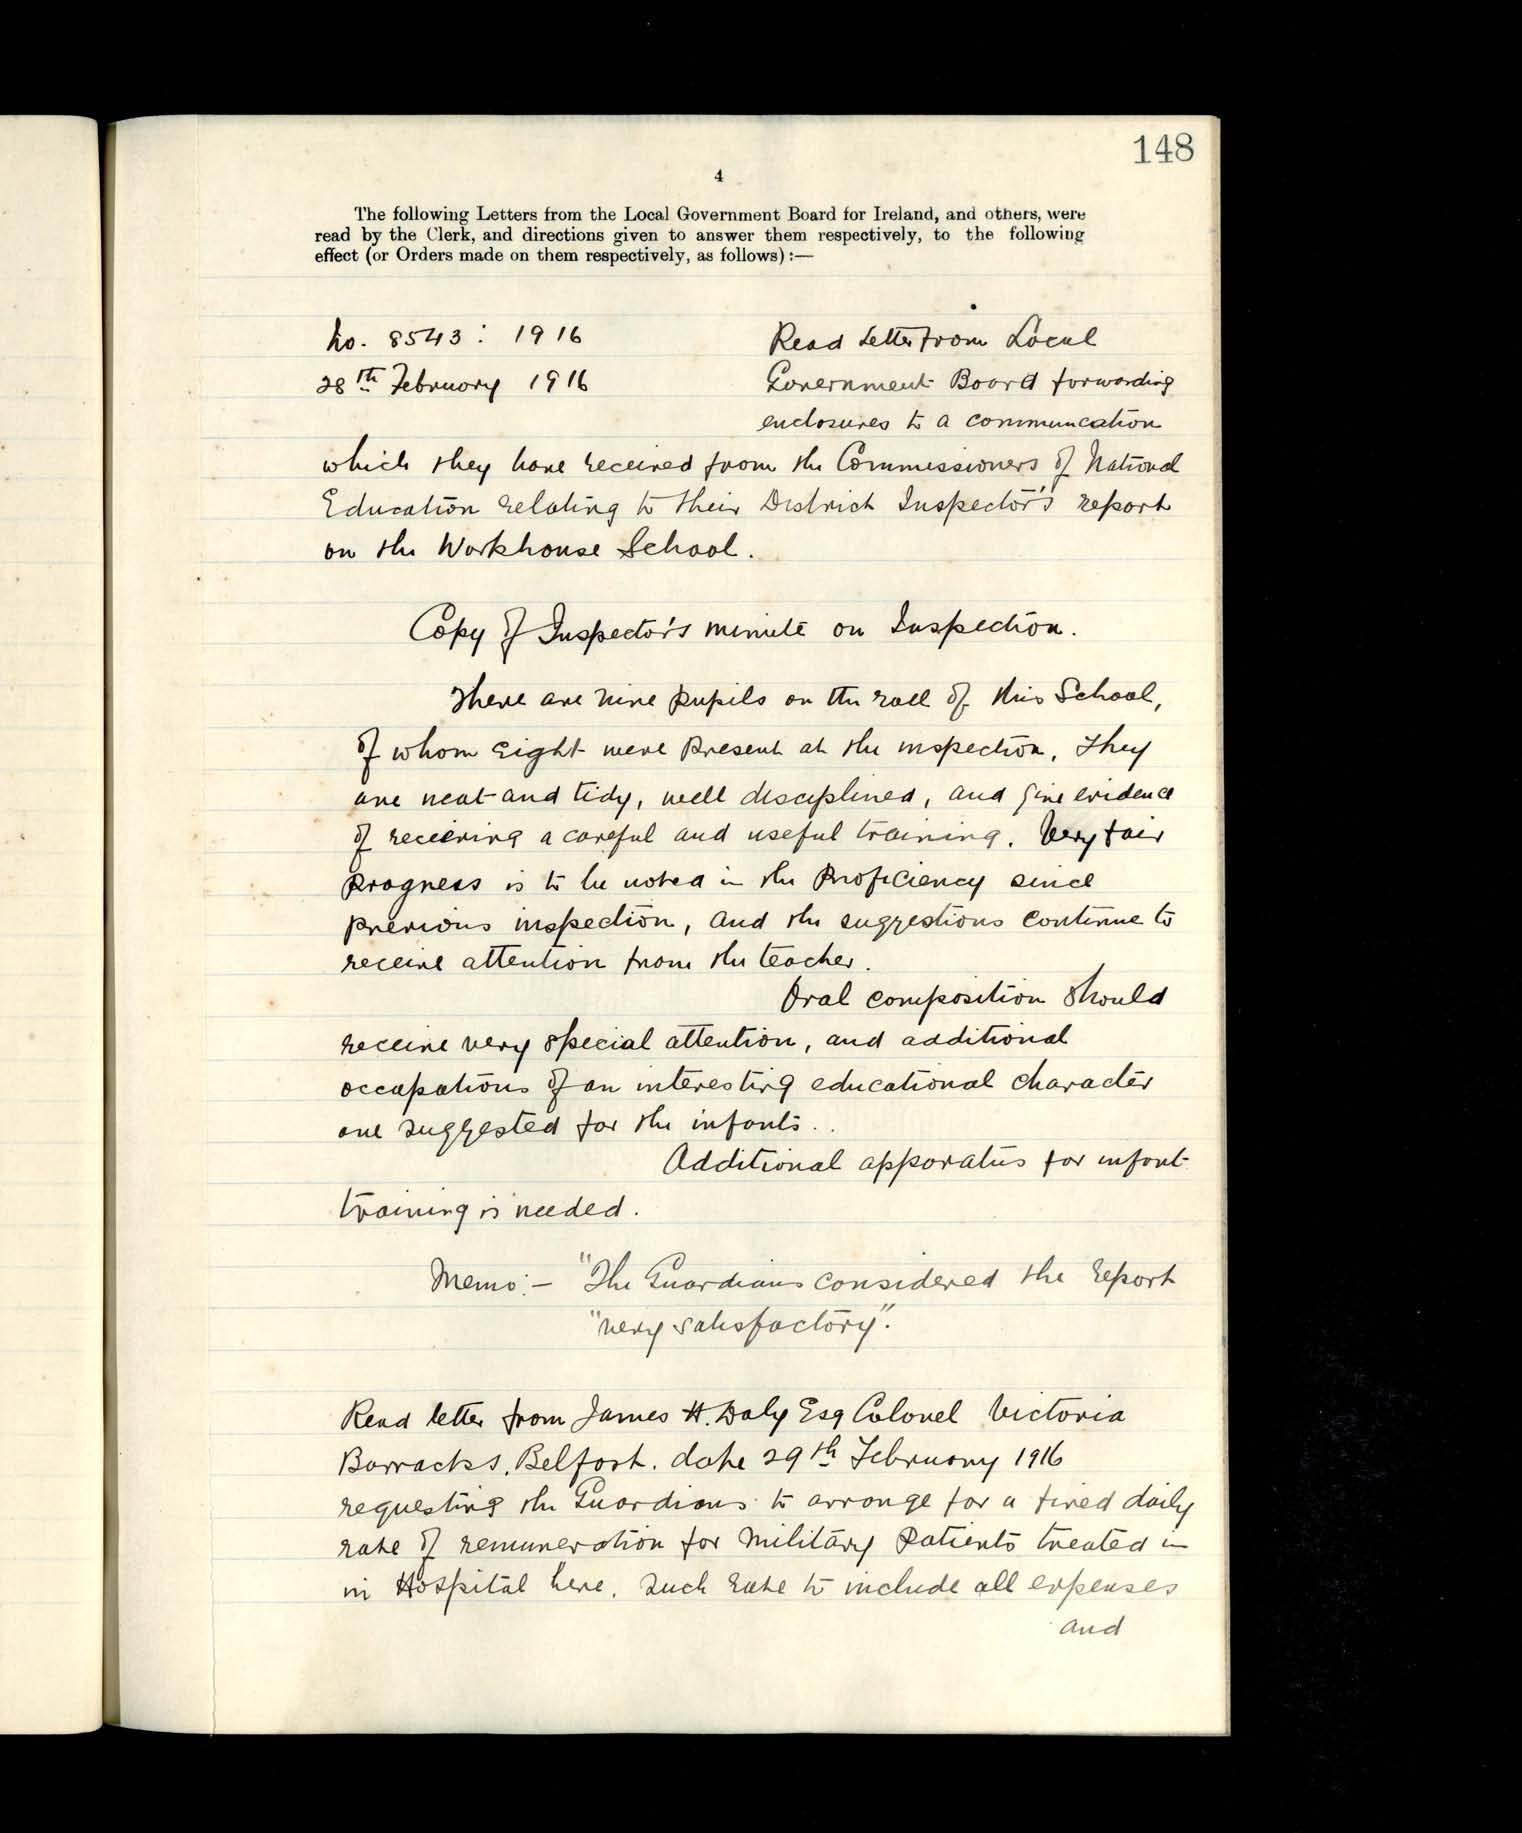 148
4
The following Letters from the Local Government Board for Ireland, and others, were
read by the Clerk, and directions given to answer them respectively, to the following
effect (or Orders made on them respectively, as follows):—
No. 8543: 1916
28th February 1916
Read letter from Local
Government Board forwarding
enclosures to a communcation
which they have received from the Commissioners of National
Education relating to their District Inspector's report
on the Workhouse School.
Copy of Inspector's minute on Inspection.
There are nine pupils on the roll of this School,
of whom eight were present at the inspection. They
are neat and tidy, well disciplined, and give evidence
of receiving a careful and useful training. Very fair
progress is to be noted in the proficiency since
previous inspection, and the suggestions continue to
receive attention from the teacher.
Oral composition should
receive very special attention, and additional
occupations of an interesting educational character
are suggested for the infants..
Additional apparatus for infant
training is needed.
Memo:- "The Guardians considered the report
"very satisfactory".
Read letter from James H. Daly Esq Colonel Victoria
Barracks, Belfast. date 29th February 1916
requesting the Guardians to arrange for a fixed daily
rate of remuneration for military patients treated in
in Hospital here. Such rate to include all expenses
and